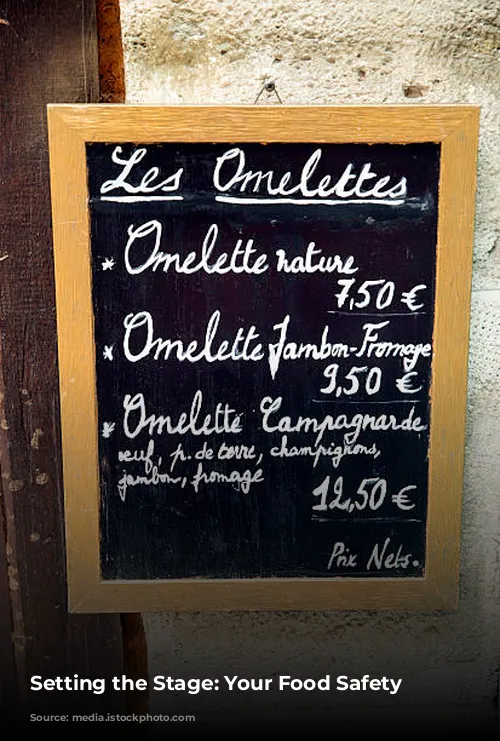 Les Omelettes
* Omelette nature
7,50 €
* Omelette Jambon-Fromage
9,50 €
* Omelette Campagnarde
œuf, p. de terre, champignons,
jambon, fromage
12,50 €
Prix Nets.
Setting the Stage: Your Food Safety
Source: media.istockphoto.com